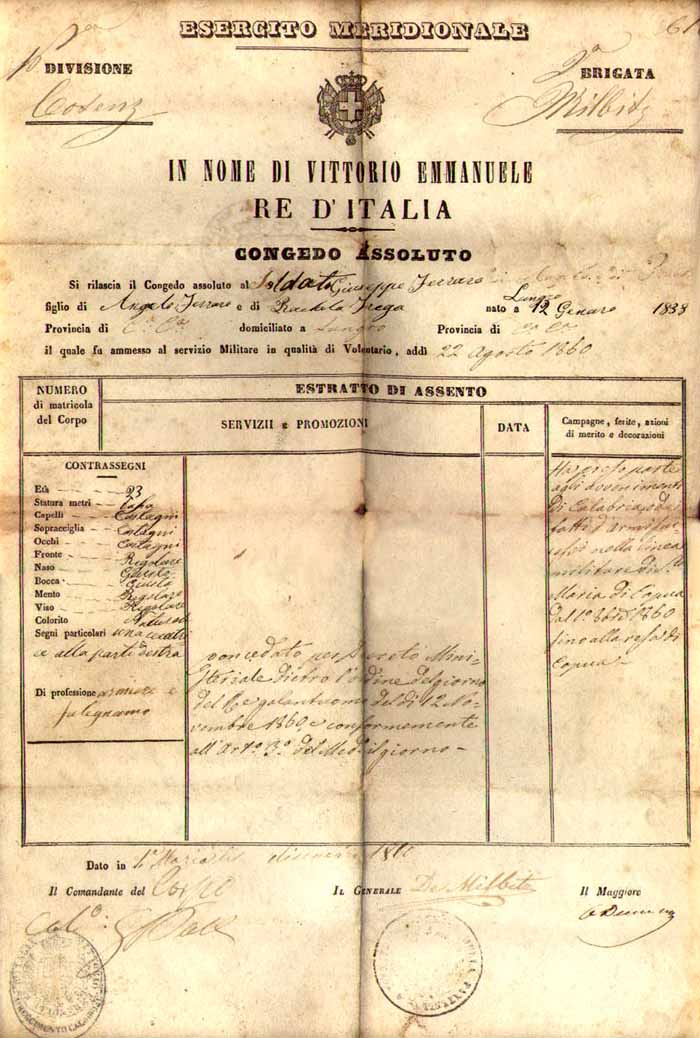 ESERCITO MERIDIONALE
DIVISIONE
Cosenz
BRIGATA
Milbitz
IN NOME DI VITTORIO EMMANUELE
RE D'ITALIA
CONGEDO ASSOLUTO
Si rilascia il Congedo assoluto al Soldato Giuseppe Ferraro
figlio di Angelo Ferraro e di Rachela Frega nato a Lungro 12 Genaro 1838
Provincia di domiciliato a Lungro Provincia di
il quale fu ammesso al servizio Militare in qualità di Volontario, addì 22 Agosto 1860
NUMERO
di matricola
del Corpo
ESTRATTO DI ASSENTO
SERVIZII e PROMOZIONI
DATA
Campagne, ferite, azioni
di merito e decorazioni
CONTRASSEGNI
Età 23
Statura metri
Capelli Castagni
Sopracciglia Castagni
Occhi Castagni
Fronte Regolare
Naso Giusto
Bocca Giusta
Mento Regolare
Viso Regolare
Colorito Naturale
Segni particolari una
e alla parte destra
Di professione armiere e
falegnamo
Congedato per Decreto Mini-
steriale dietro l'ordine del giorno
del Re galantuomo del dì 12 No-
vembre 1860, e conformemente
all'Art.º 3º del Med. il giorno -
Ha preso parte
agli avvenimenti
di Calabria,
fatti d'armi
nella linea
militare di S.
Maria di Capua
dal 1º 8bre 1860
sino alla resa di
Capua
Dato in S. Maria li dicembre 1860
Il Comandante del Corpo
IL GENERALE De Milbitz
Il Maggiore